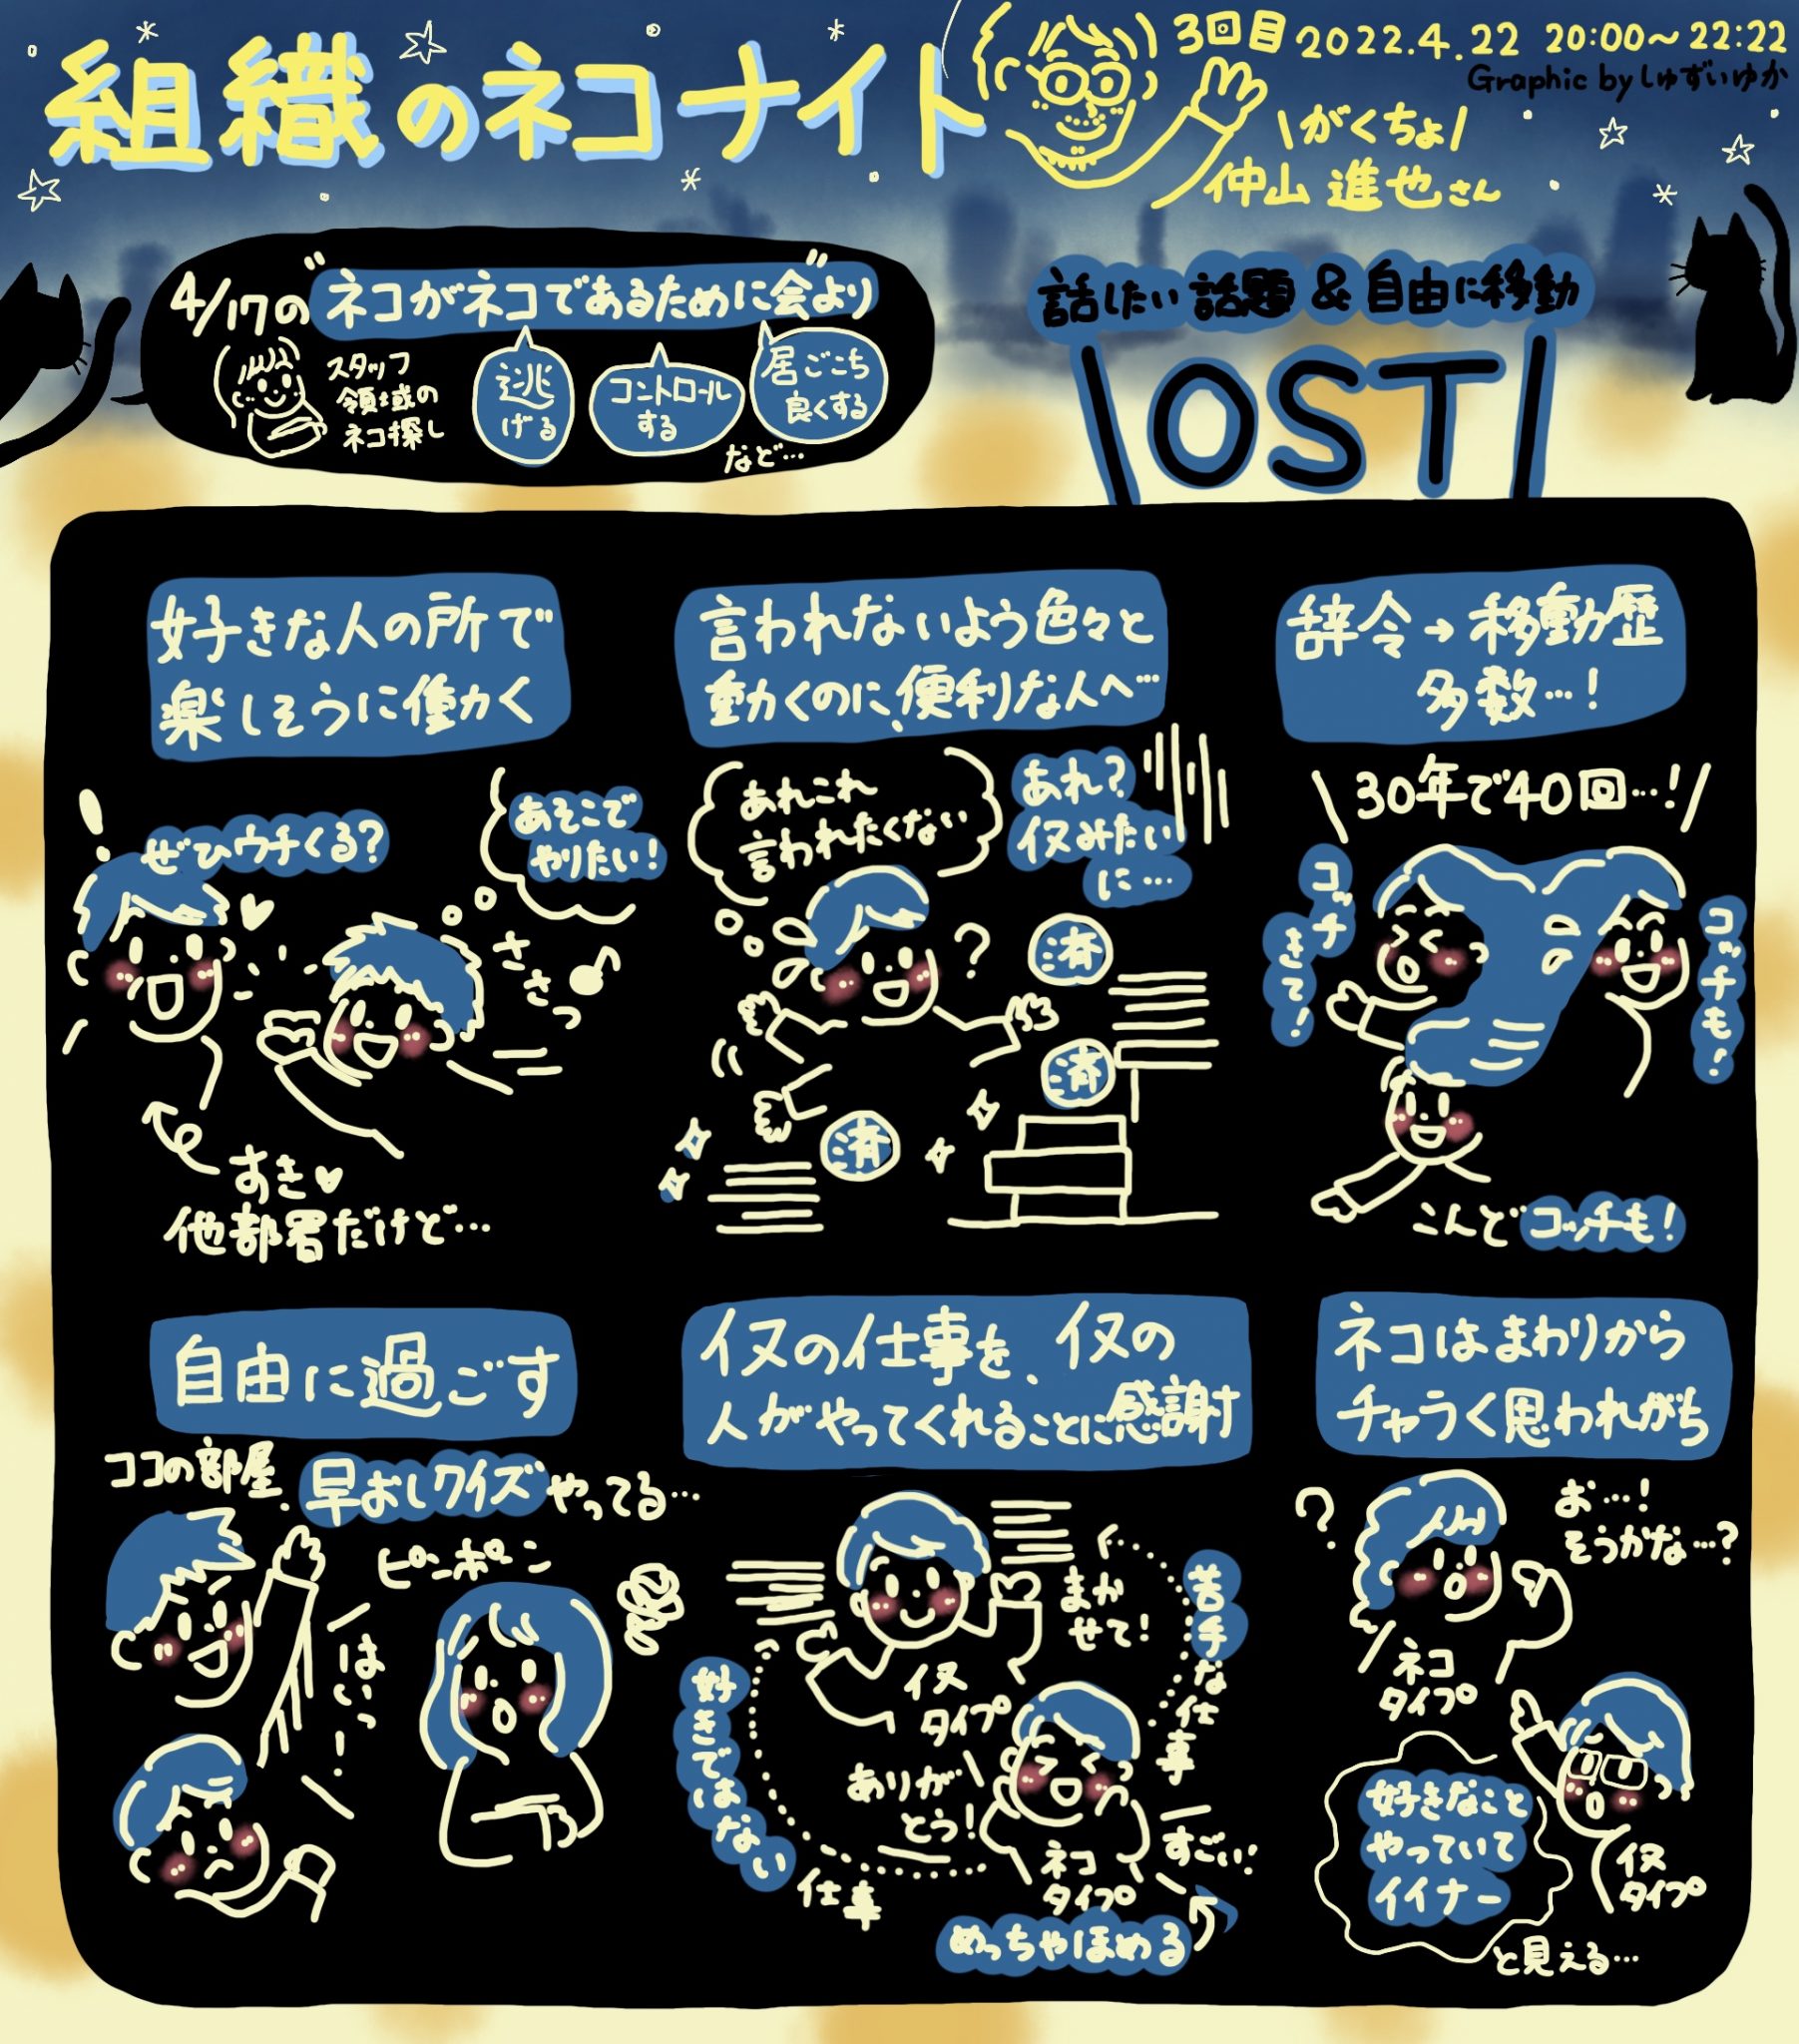 組織のネコナイト
3回目 2022.4.22 20:00〜22:22
Graphic by しゅずいゆか
\がくちょ/
仲山 進也さん
4/17の"ネコがネコであるために会"より
スタッフ
領域の
ネコ探し
逃
げる
コントロール
する
居ごこち
良くする
など…
話したい話題&自由に移動
\OST/
好きな人の所で
楽しそうに働かく
!
ぜひウチくる?
あそこで
やりたい!
ささっ
すき♥
他部署だけど…
言われないよう色々と
動くのに、便利な人へ…
あれこれ
言われたくない
あれ?
イヌみたい
に…
?
済
済
済
辞令→移動歴
多数…!
\30年で40回…!/
コッチ
きて!
コッチも!
こんどコッチも!
自由に過ごす
ココの部屋、早おしクイズやってる…
ピンポーン
はいっ!
イヌの仕事を、イヌの
人がやってくれることに感謝
まか
せて!
苦手な仕事
イヌ
タイプ
好きではない
仕事
ありが
とう!
ネコ
タイプ
すごい!
めっちゃほめる
ネコはまわりから
チャラく思われがち
?
お…!
そうかな…?
ネコ
タイプ
好きなこと
やっていて
イイナー
イヌ
タイプ
と見える…